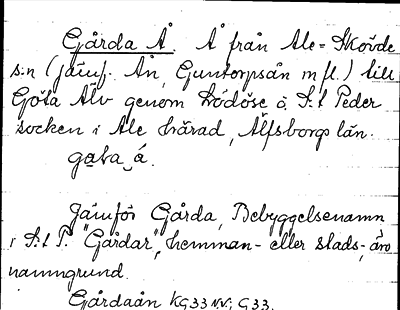 Gårda Å. Å från Ale-Skövde
s:n (jämf. Ån, Guntorpsån m fl.) till
Göta Älv genom Lödöse o. S:t Peder
socken i Ale härad, Älfsborgs län.
gaba å.
Jämför Gårda, Bebyggelsenamn
i S:t P. "Gårdar", hemman- eller stads-, äro
namngrund.
Gårdaån KG33 NV; G33.